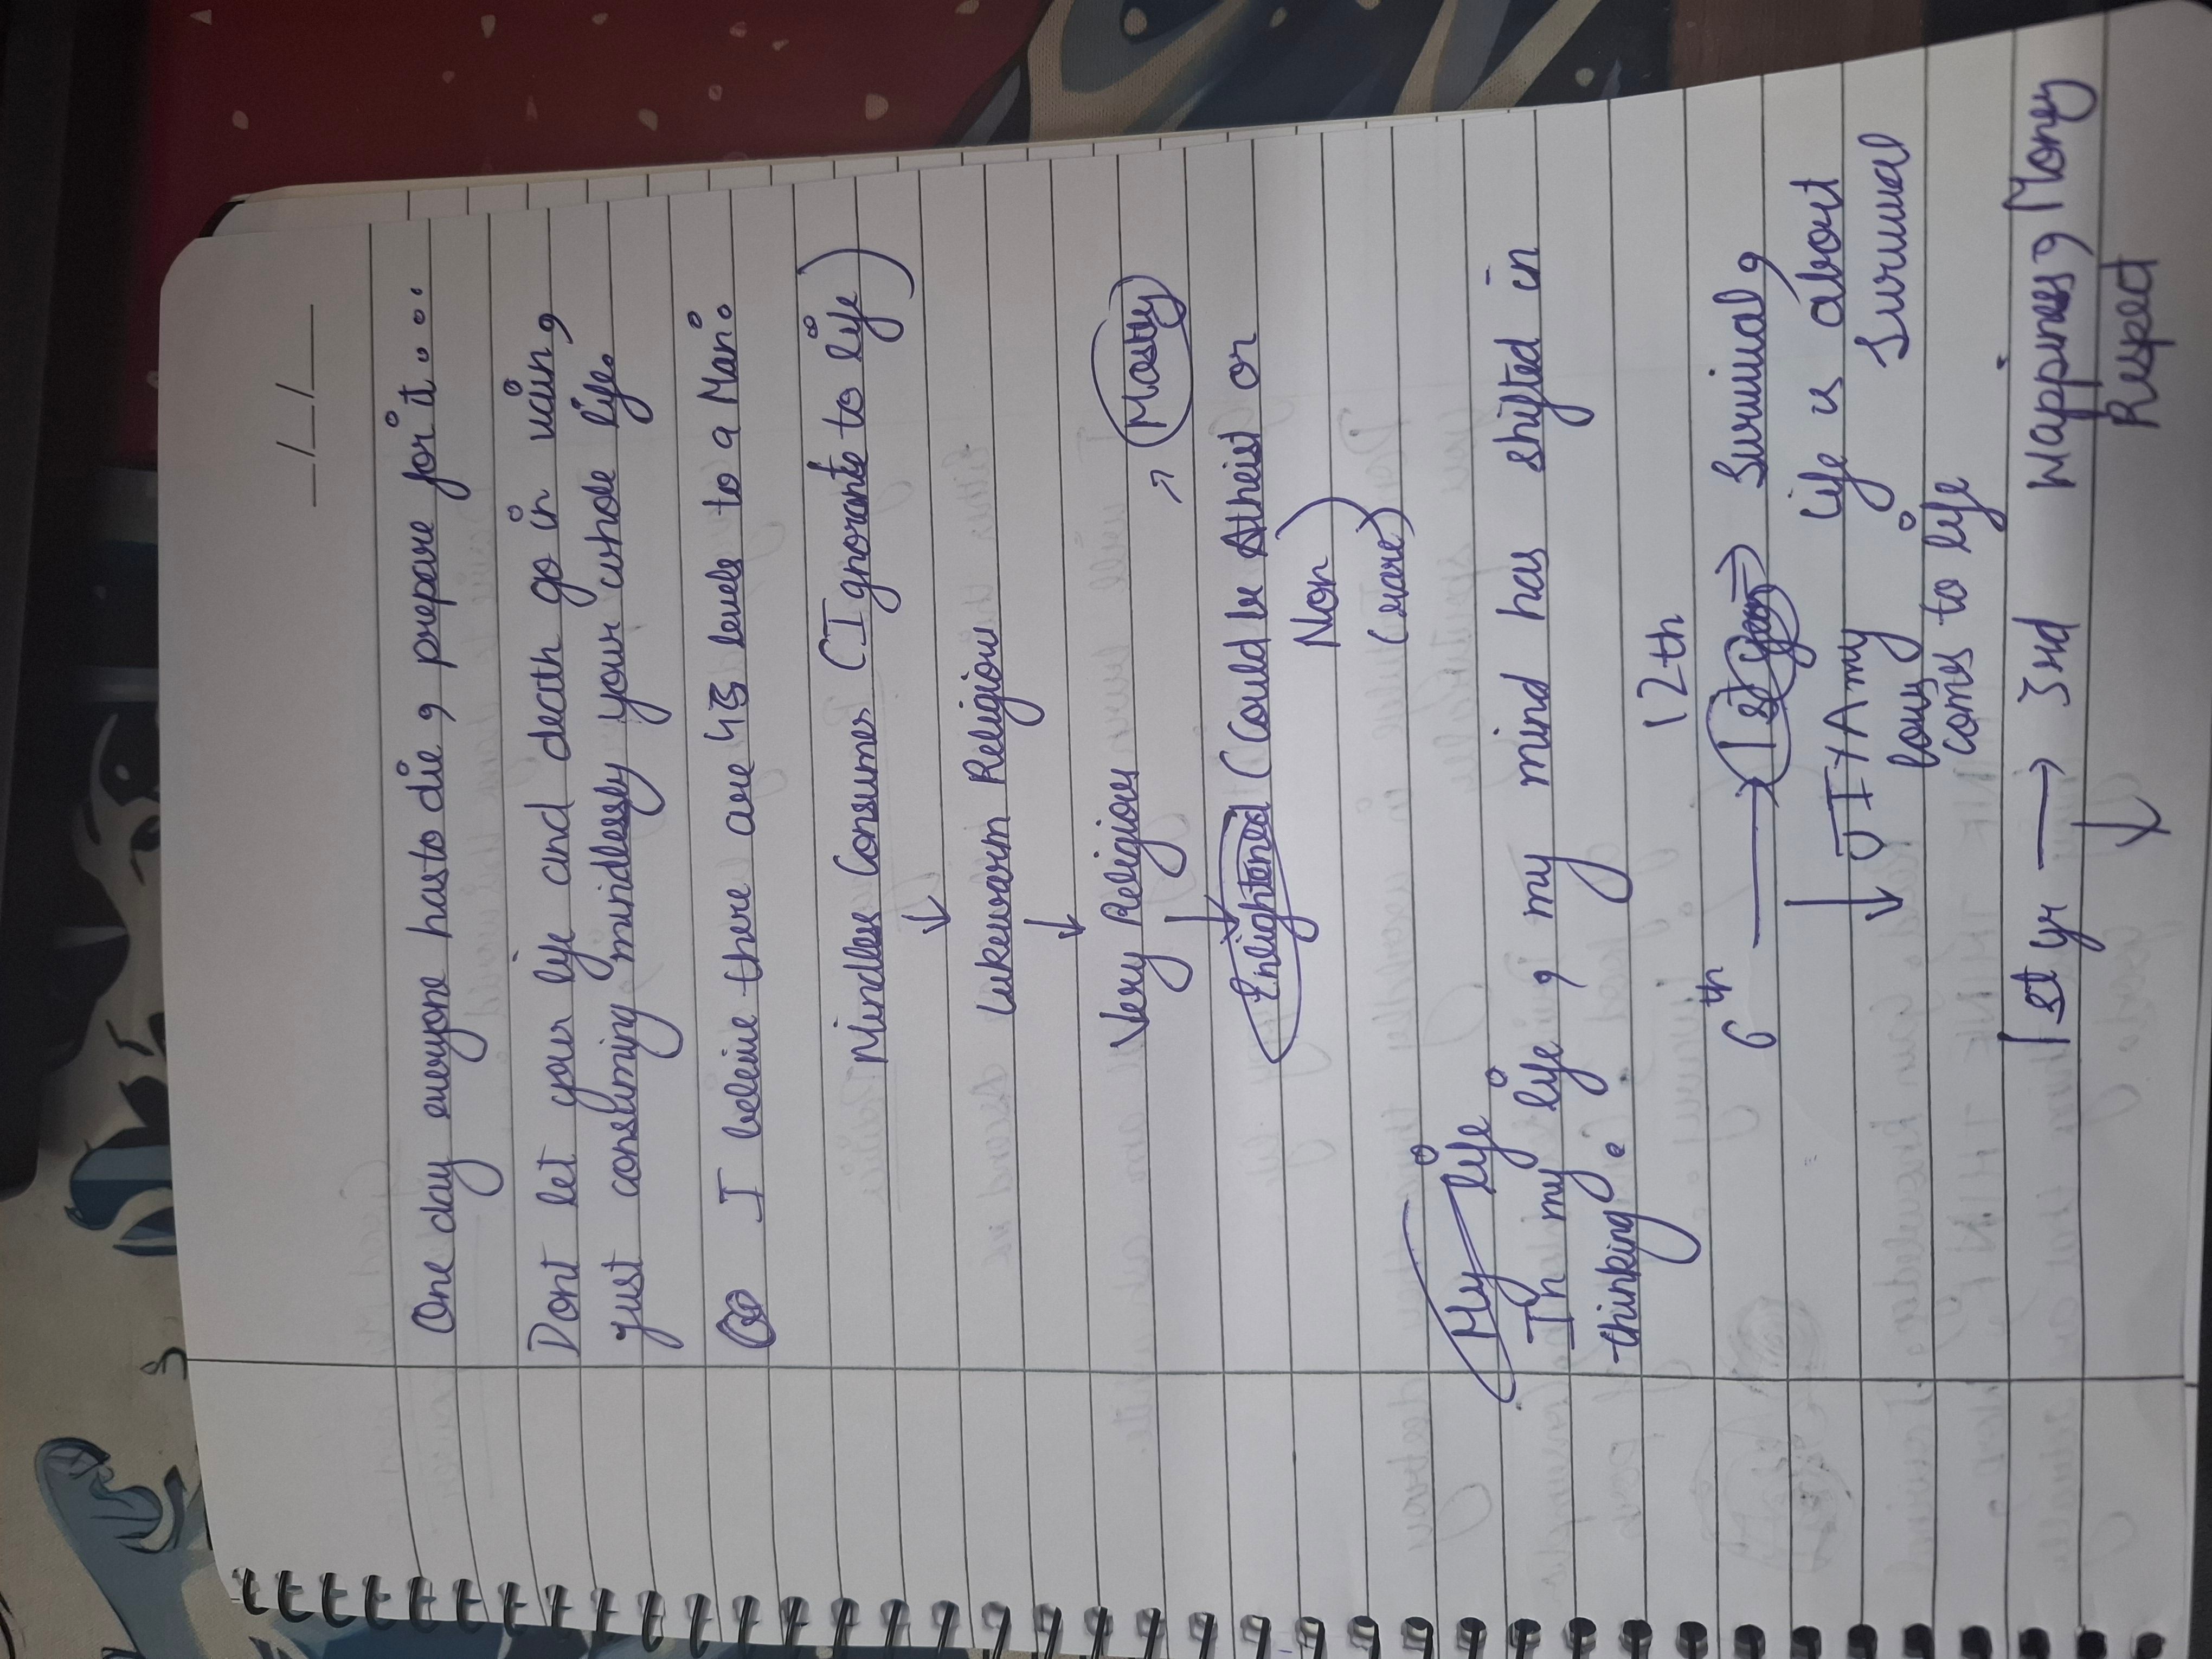 __/__/__
One day everyone has to die, prepare for it....
Dont let your life and death go in vain,
just consuming mindlessly your whole life.
I believe there are 45 levels to a Man:
Mindless Consumes (Ignorante to life)
↓
Lukewarm Religious
↓
Very Religious ↗ Mostly
↓
Enlightened (Could be Atheist or
Non)
(rare)
My life
In my life, my mind has shifted in
thinking.
12th
6th → 1st year ⇒ Survival,
↓ life is about
Survival
comes to life
1st yr → 3rd Happiness, Money
↓ Respect